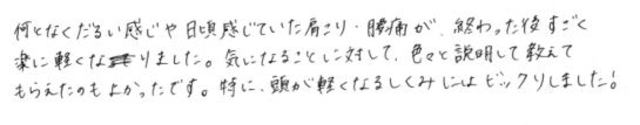 何となくだるい感じや日頃感じていた肩こり・腰痛が、終わった後すごく
楽に軽くなりました。気になることに対して、色々と説明して教えて
もらえたのもよかったです。特に、頭が軽くなるしくみにはビックリしました!